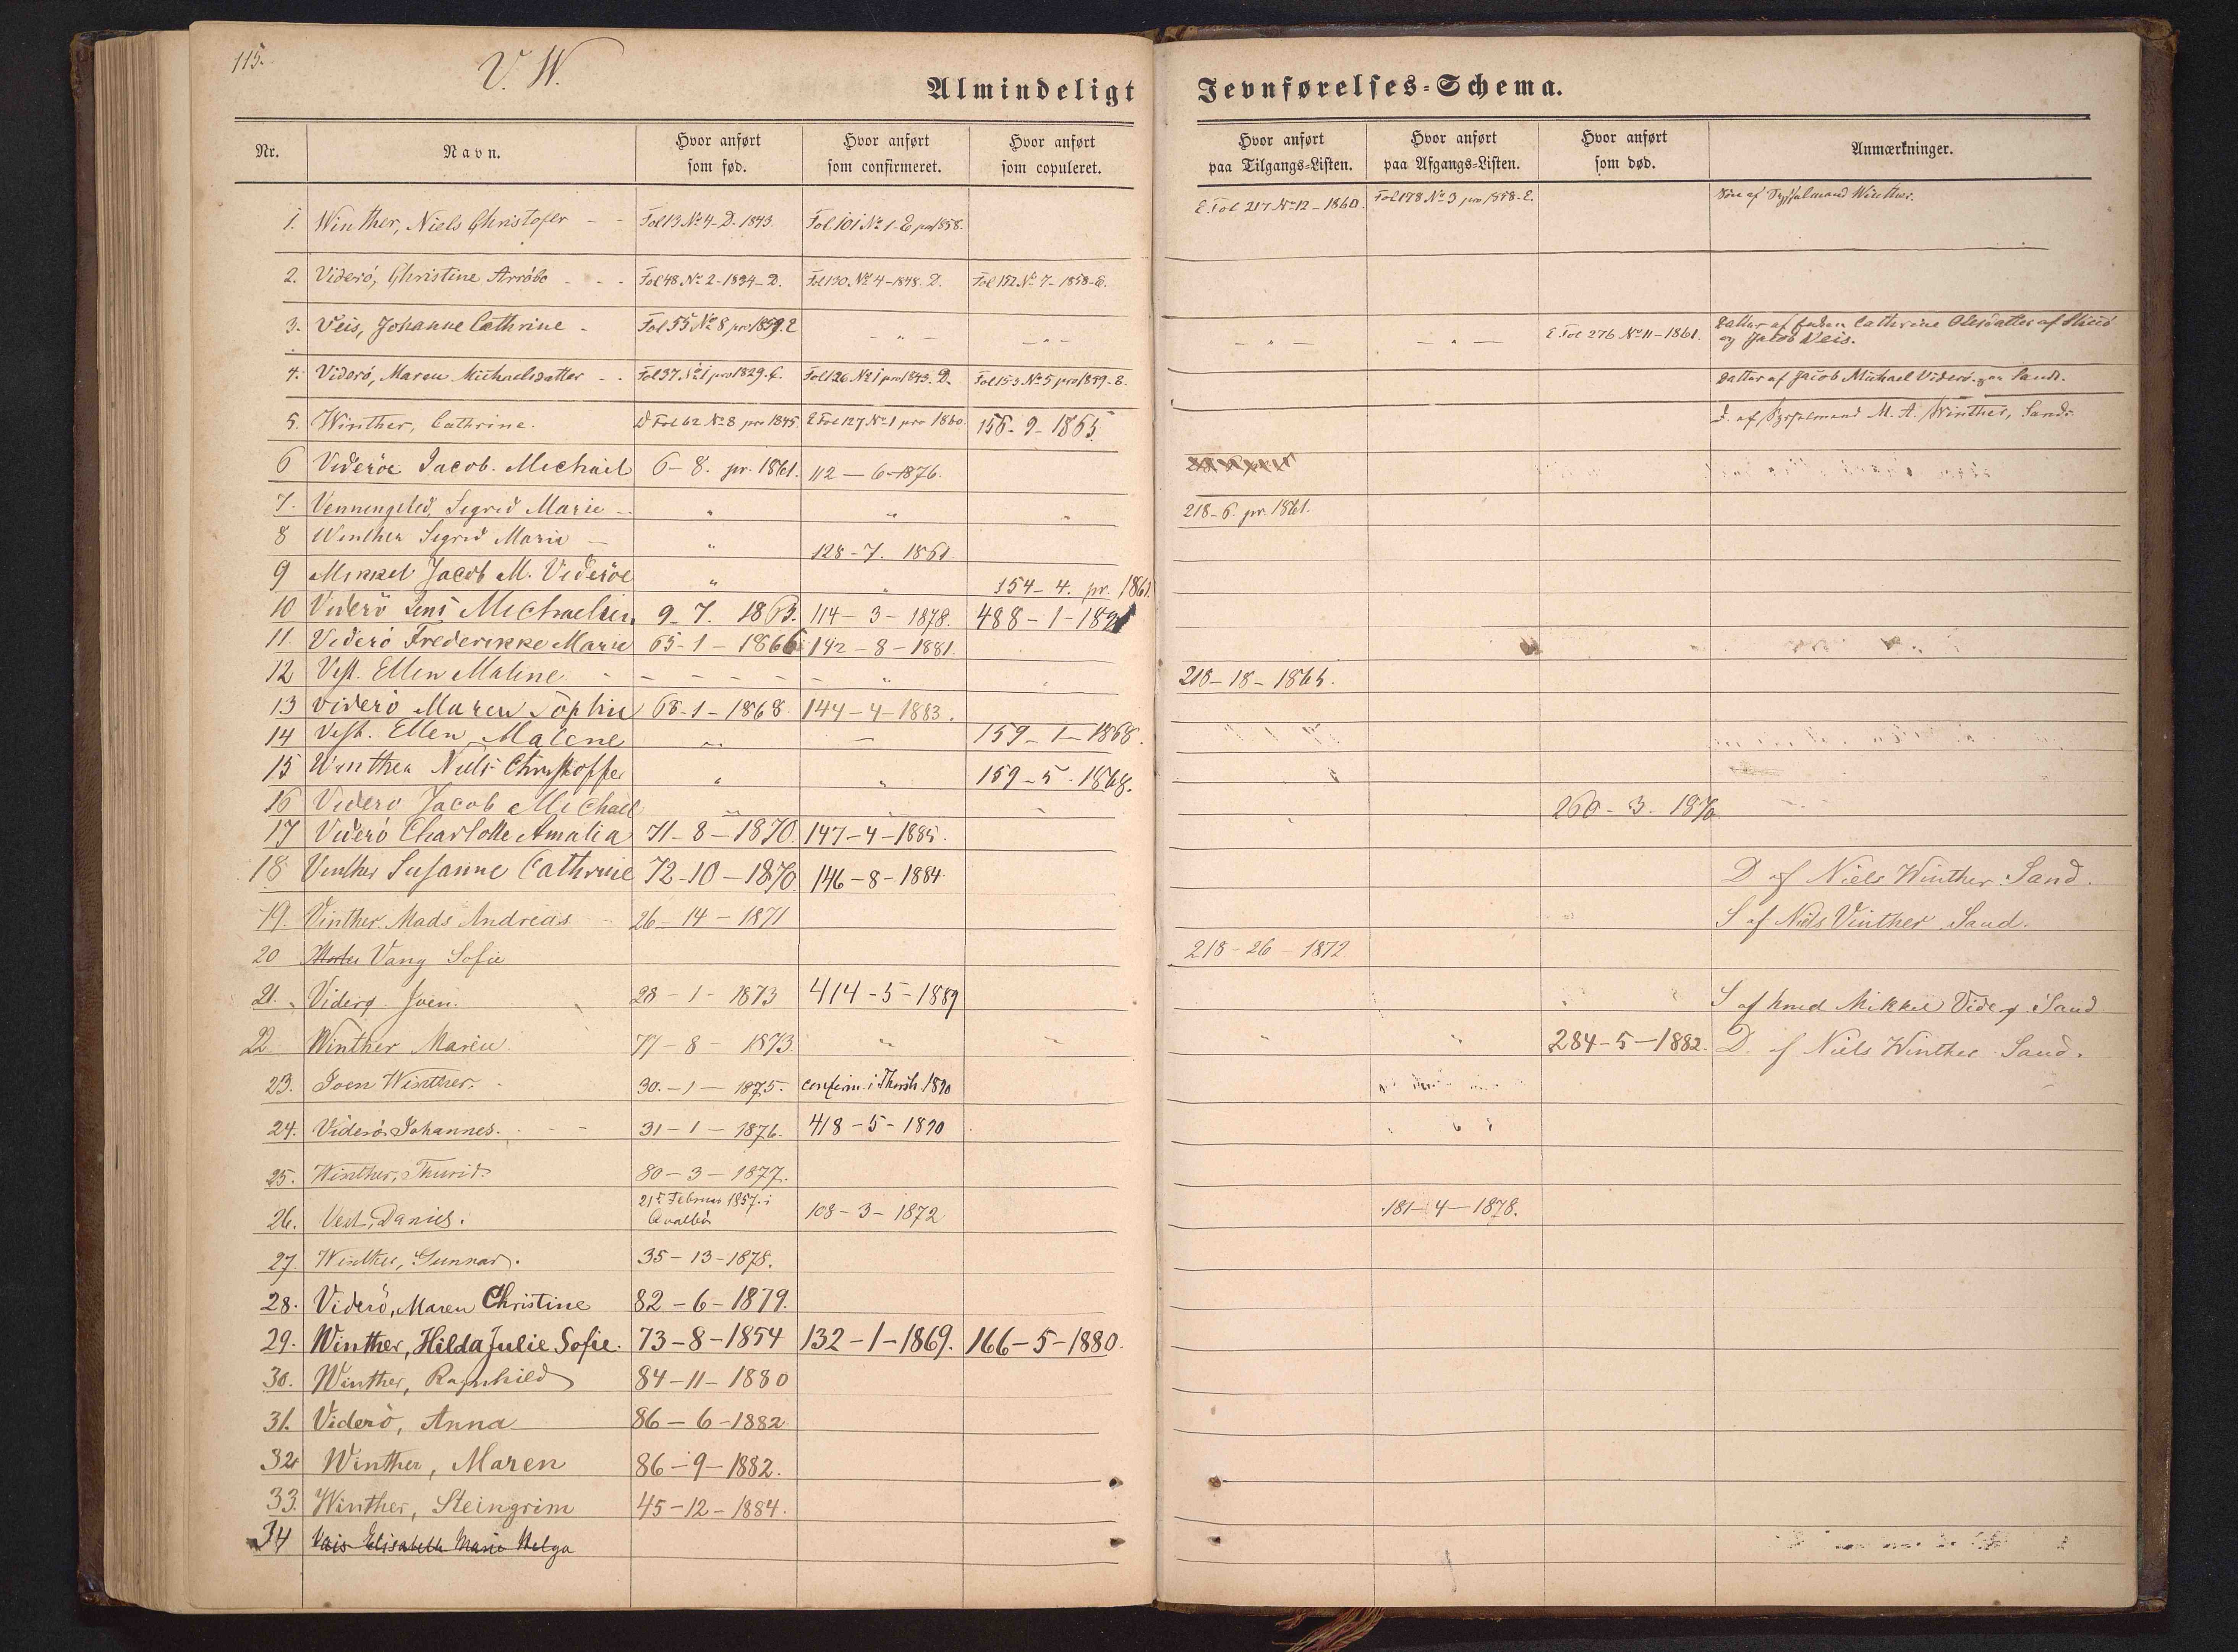 115.
V. W.
Almindeligt Jevnførelses-Schema.
Nr. Navn. Hvor anført som fød. Hvor anført som confirmeret. Hvor anført som copuleret. Hvor anført paa Tilgangs-Listen. Hvor anført paa Afgangs-Listen. Hvor anført som død. Anmærkninger.
1. Winther, Niels Christofer - - Fol 13 No 4-D. 1843. Fol 101 No 1-E pro 1858. E. Fol 217 No 12-1860. Fol 178 No 3 pro 1858-E. Søn af Sysselmand Winther.
2. Viderö, Christine Arröbo - - - Fol 48 No 2-1834-D. Fol 130. No 4-1848. D. Fol 152 No 7-1858-E.
3. Veis, Johanne Cathrine - Fol 55 No 8 pro 1859. E - " - - " - - " - - " - E Fol 276 No 11-1861. Datter af Cathrine Olesdatter af
og Jacob Veis.
4. Viderö, Maren Michaelsdatter - - Fol 37 No 1 pro 1829. C. Fol 126 No 1 pro 1843. D. Fol 153 No 5 pro 1859-E. Datter af Jacob Michael Viderö paa Sand.
5. Winther, Cathrine. D Fol 62 No 8 pro 1845 E Fol 127 No 1 pro 1860. 156-9-1865. D. af Sysselmand M. A. Winther, Sand.
6 Videröe Jacob. Michail 6-8. pr. 1861. 112-6-1876.
7. Sigrid Marie - " " " 218-6. pr. 1861.
8 Winther Sigrid Marie - " 128-7. 1861
9 Mikkel Jacob M. Videröe " " 154-4. pr. 1861.
10 Viderö Jens Michaelsen, 9-7. 1863. 114-3-1878. 488-1-1891
11. Viderö Frederikke Marie 65-1-1866 142-8-1881.
12 Vest. Ellen Malene - - - - - - - " 218-18-1865.
13 Viderö Maren Sophie 68-1-1868. 144-4-1883.
14 Vest. Ellen Malene " - 159-1-1868.
15 Winther Niels Christoffer " " 159-5-1868.
16 Viderö Jacob Michael " " " 260-3-1870
17 Viderö Charlotte Amalia 71-8-1870. 147-4-1885.
18 Vinther Susanne Cathrine 72-10-1870. 146-8-1884. D af Niels Winther. Sand.
19. Vinther. Mads Andreas 26-14-1871 S af Niels Vinther Sand.
20 Vang Sofie 218-26-1872.
21. Viderø. Joen. 28-1-1873 414-5-1889 S af Mikkel Viderø i Sand
22 Winther Maren. 77-8-1873. " " " " 284-5-1882. D. af Niels Winther Sand.
23. Joen Winther. 30.-1-1875. confirm. i Thorsh. 1890
24. Viderö Johannes. - - 31-1-1876. 418-5-1890
25. Winther, Thurid. 80-3-1877.
26. Vest, Daniel. 21e Februar 1857. i
Qvalbö 108-3-1872 181-4-1878.
27. Winther, Gunnar. 35-13-1878.
28. Viderö, Maren Christine 82-6-1879.
29. Winther, Hilda Julie Sofie. 73-8-1854 132-1-1869. 166-5-1880.
30. Winther, Ragnhild 84-11-1880
31. Viderö, Anna 86-6-1882.
32. Winther, Maren 86-9-1882.
33. Winther, Steingrim 45-12-1884.
34 Vais Elisabeth Marie Helga